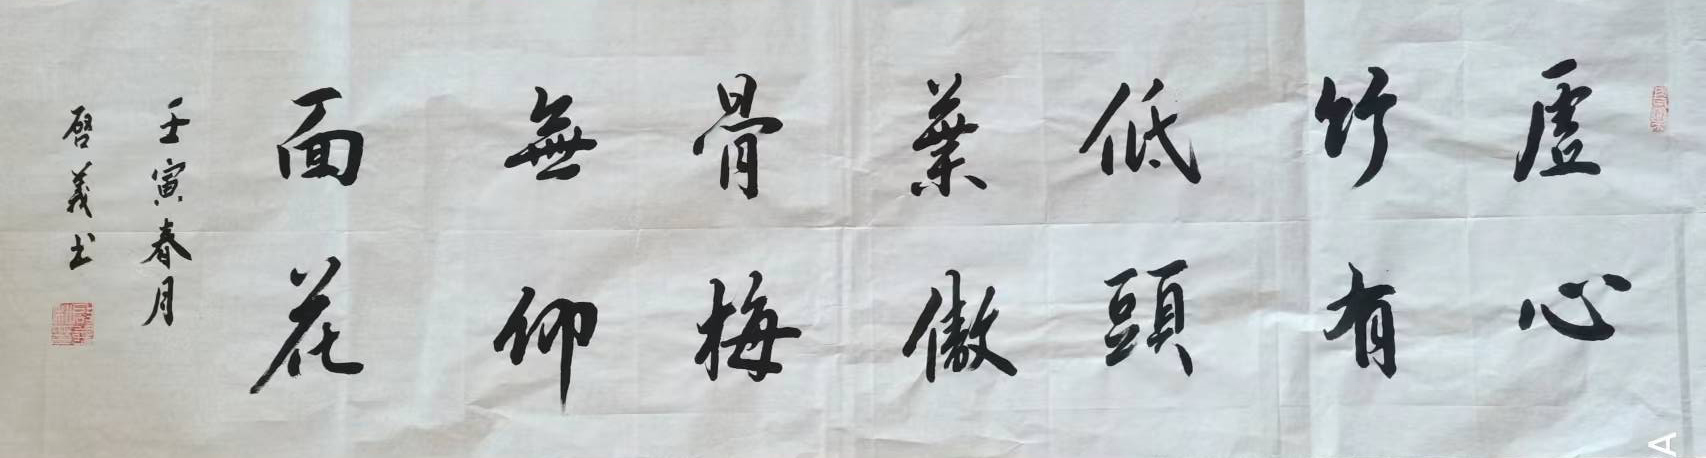 虛心
竹有
低頭
葉傲
骨梅
無仰
面花
壬寅春月
啓義书
A